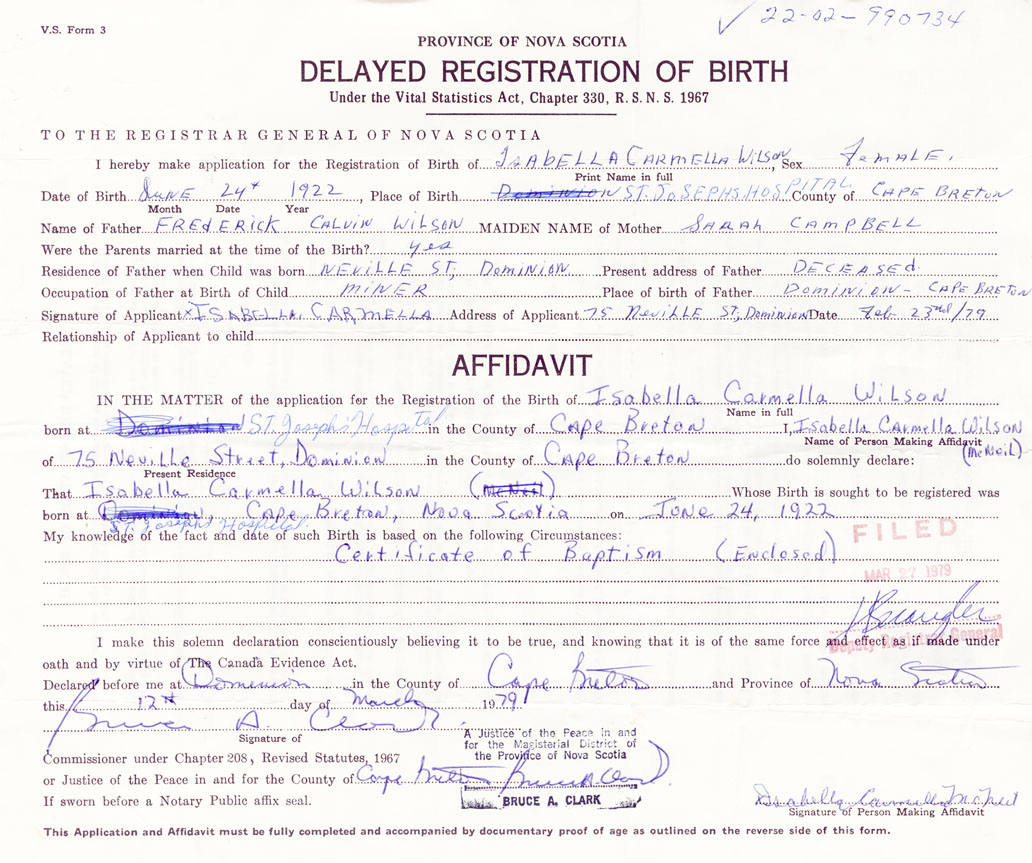 V.S. Form 3
✓ 22-02-990734
PROVINCE OF NOVA SCOTIA
DELAYED REGISTRATION OF BIRTH
Under the Vital Statistics Act, Chapter 330, R.S.N.S. 1967
TO THE REGISTRAR GENERAL OF NOVA SCOTIA
I hereby make application for the Registration of Birth of ISABELLA CARMELLA WILSON, Sex FEMALE.
Print Name in full
Date of Birth JUNE 24th 1922, Place of Birth Dominion ST. JOSEPHS HOSPITAL County of CAPE BRETON
Month Date Year
Name of Father FREDERICK CALVIN WILSON MAIDEN NAME of Mother SARAH CAMPBELL
Were the Parents married at the time of the Birth? yes
Residence of Father when Child was born NEVILLE ST, DOMINION Present address of Father DECEASED
Occupation of Father at Birth of Child MINER Place of birth of Father DOMINION - CAPE BRETON
Signature of Applicant x ISABELLA CARMELLA Address of Applicant 75 NEVILLE ST, DOMINION Date Feb 23rd/79
Relationship of Applicant to child
AFFIDAVIT
IN THE MATTER of the application for the Registration of the Birth of Isabella Carmella Wilson
Name in full
born at Dominion ST. Joseph's Hospital in the County of Cape Breton I, Isabella Carmella Wilson
Name of Person Making Affidavit
of 75 Neville Street, Dominion in the County of Cape Breton do solemnly declare: (McNeil)
Present Residence
That Isabella Carmella Wilson (McNeil) Whose Birth is sought to be registered was
born at Dominion, Cape Breton, Nova Scotia on June 24, 1922
ST. Josephs Hospital
My knowledge of the fact and date of such Birth is based on the following Circumstances:
FILED
Certificate of Baptism (Enclosed)
MAR 27 1979
I make this solemn declaration conscientiously believing it to be true, and knowing that it is of the same force and effect as if made under
Deputy Registrar General
oath and by virtue of The Canada Evidence Act.
Declared before me at Dominion in the County of Cape Breton and Province of Nova Scotia
this 12th day of March 1979
Bruce A. Clark
Signature of
A Justice of the Peace in and
for the Magisterial District of
the Province of Nova Scotia
Commissioner under Chapter 208, Revised Statutes, 1967
or Justice of the Peace in and for the County of Cape Breton Bruce A. Clark
BRUCE A. CLARK
If sworn before a Notary Public affix seal.
Isabella Carmella McNeil
Signature of Person Making Affidavit
This Application and Affidavit must be fully completed and accompanied by documentary proof of age as outlined on the reverse side of this form.